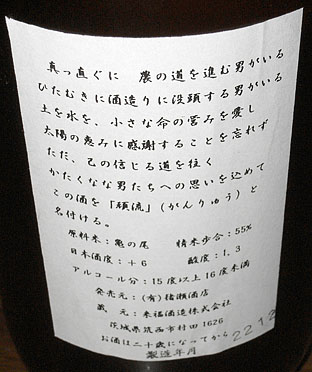 真っ直ぐに 農の道を進む男がいる
ひたむきに酒造りに没頭する男がいる
土を水を、小さな命の営みを愛し
太陽の恵みに感謝することを忘れず
ただ、己の信じる道を往く
かたくなな男たちへの思いを込めて
この酒を「頑流」(がんりゅう)と
名付ける。
原料米:亀の尾 精米歩合:55%
日本酒度:+6 酸度:1.3
アルコール分:15度以上16度未満
発売元:(有)猪瀬酒店
蔵元:来福酒造株式会社
茨城県筑西市村田1626
お酒は二十歳になってから
製造年月 22.12